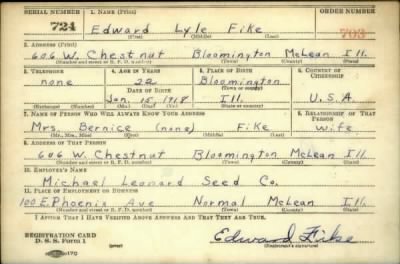 SERIAL NUMBER 1. NAME (Print) ORDER NUMBER
724 Edward Lyle Fike 703
(First) (Middle) (Last)
2. ADDRESS (Print)
606 W. Chestnut Bloomington McLean Ill.
(Number and street or R. F. D. number) (Town) (County) (State)
3. TELEPHONE 4. AGE IN YEARS 5. PLACE OF BIRTH 6. COUNTRY OF CITIZENSHIP
none 22 Bloomington
DATE OF BIRTH (Town or county)
Jan. 15, 1918 Ill. U.S.A.
(Exchange) (Number) (Mo.) (Day) (Yr.) (State or country)
7. NAME OF PERSON WHO WILL ALWAYS KNOW YOUR ADDRESS 8. RELATIONSHIP OF THAT PERSON
Mrs. Bernice (none) Fike wife
(Mr., Mrs., Miss) (First) (Middle) (Last)
9. ADDRESS OF THAT PERSON
606 W. Chestnut Bloomington McLean Ill.
(Number and street or R. F. D. number) (Town) (County) (State)
10. EMPLOYER'S NAME
Michael Leonard Seed Co.
11. PLACE OF EMPLOYMENT OR BUSINESS
100 E. Phoenix Ave Normal McLean Ill.
(Number and street or R. F. D. number) (Town) (County) (State)
I AFFIRM THAT I HAVE VERIFIED ABOVE ANSWERS AND THAT THEY ARE TRUE.
REGISTRATION CARD
D. S. S. Form 1 Edward Fike
(Registrant's signature)